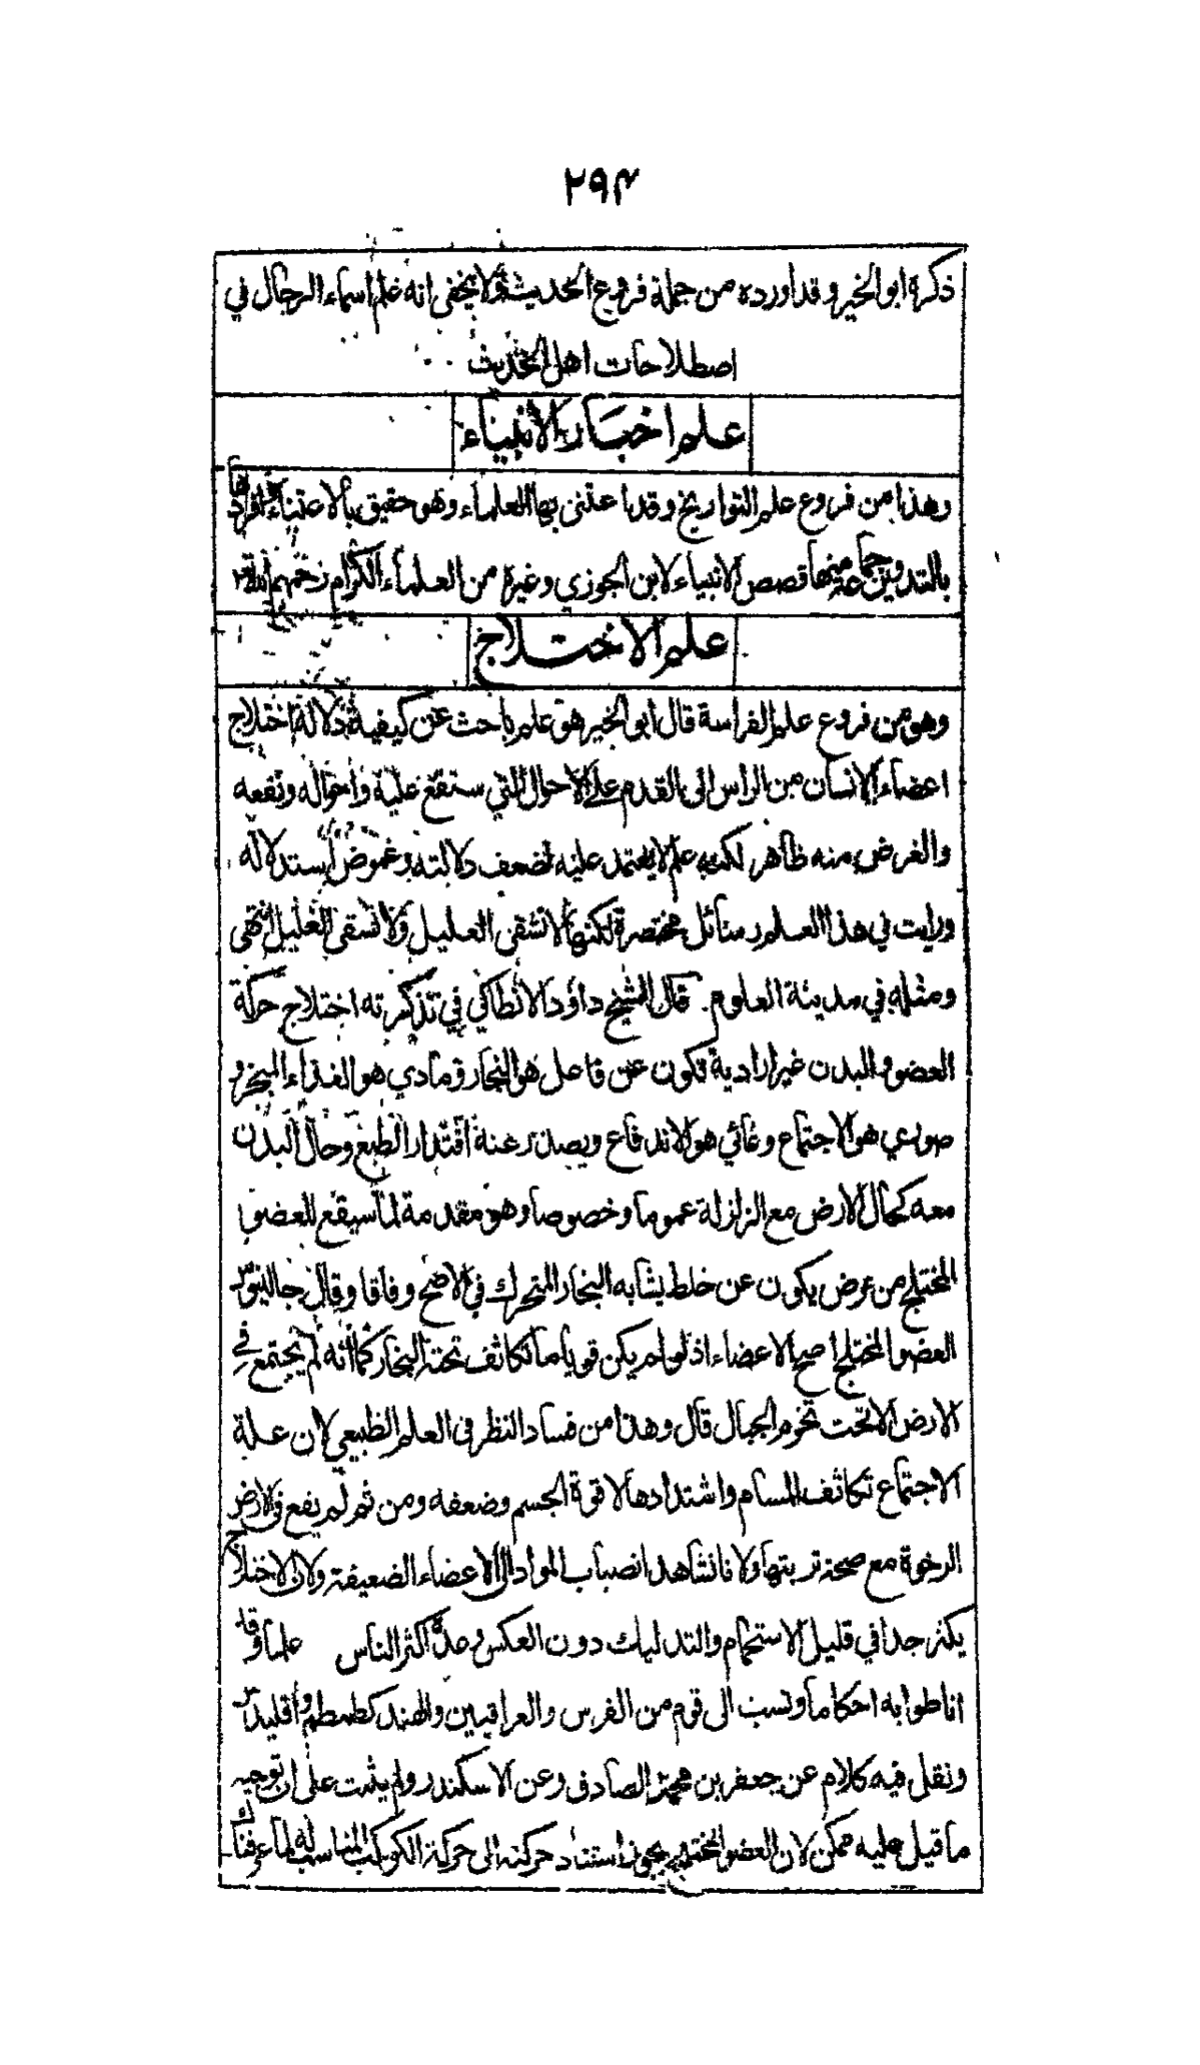 ٢٩٤
ذكرة ابو الخير وقد اورده من جملة فروع الحديث ولا يخفى انه علم اسماء الرجال في
اصطلاحات اهل الحديث
علم اخبار الانبياء
وهذا من فروع علم التواريخ وقد اعتنى بها العلماء وهو حقيق بالاعتناء وافردها
بالتدوين جماعة منها قصص الانبياء لابن الجوزي وغيرة من العلماء الكرام رحمهم الله
علم الاختلاج
وهو من فروع علم الفراسة قال ابو الخير هو علم باحث عن كيفية دلالة اختلاج
اعضاء الانسان من الراس الى القدم على الاحوال التي ستقع عليه واحواله ونفعه
والغرض منه ظاهر لكنه علم لا يعتمد عليه لضعف دلالته وغموض استدلاله
ورايت في هذا العلم رسائل مختصرة لكنها لا تشفي العليل ولا تسقي الغليل انتهى
ومثله في مدينة العلوم قال الشيخ داؤد الانطاكي في تذكرته اختلاج حركة
العضو والبدن غير ارادية تكون عن فاعل هو البخار ومادي هو الغذاء المبخر و
صوري هو الاجتماع وغائي هو الاندفاع ويصدر عنة اقتدار الطبع وحال البدن
معه كحال الارض مع الزلزلة عموما وخصوصا وهو مقدمة لما سيقع للعضو
المختلج من مرض يكون عن خلط يشابه البخار المتحرك في الاصح وفاقا وقال جالينوس
العضو المختلج اصح الاعضاء اذ لو لم يكن قويا ما تكاثف تحته البخار كما انه لم يجتمع في
الارض الا تحت تخوم الجبال قال وهذا من فساد النظر في العلم الطبيعي لان علة
الاجتماع تكاثف المسام واشتدادها لا قوة الجسم وضعفه ومن ثم لم يقع في الارض
الرخوة مع صحة تربتها ولانا نشاهد انصباب المواد الى الاعضاء الضعيفة ولان الاختلاج
يكثر جدا في قليل الاستحمام والتدليك دون العكس وعدة اكثر الناس علما وقد
اناطوا به احكاما ونسب الى قوم من الفرس والعراقيين والهند كطمطم واقليدس
ونقل فيه كلام عن جعفر بن محمد الصادق وعن الاسكندر ولم يثبت على ان توجيه
ما قيل عليه ممكن لان العضو المختلج يجوز استناد حركته الى حركة الكوكب المناسب له لما عرفناك